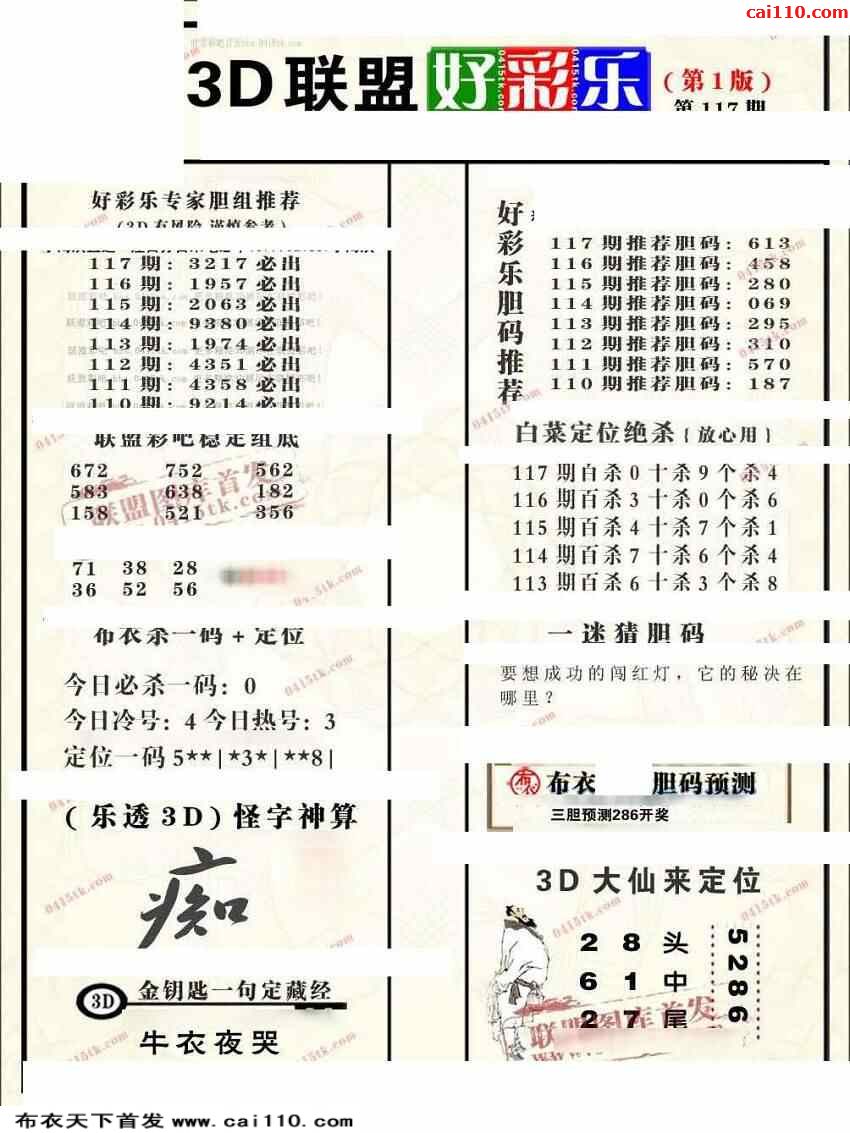 cai110.com
3D联盟好彩乐(第1版)
第117期
好彩乐专家胆组推荐
(3D有风险 谨慎参考)
117期:3217必出
116期:1957必出
115期:2063必出
114期:9380必出
113期:1974必出
112期:4351必出
111期:4358必出
110期:9214必出
联盟彩吧稳定组底
672 752 562
583 638 182
158 521 356
联盟图库首发
71 38 28
36 52 56
布衣杀一码+定位
今日必杀一码:0
今日冷号:4 今日热号:3
定位一码5**|*3*|**8|
(乐透3D)怪字神算
痴
3D 金钥匙一句定藏经
牛衣夜哭
好彩乐胆码推荐
117期推荐胆码:613
116期推荐胆码:458
115期推荐胆码:280
114期推荐胆码:069
113期推荐胆码:295
112期推荐胆码:310
111期推荐胆码:570
110期推荐胆码:187
白菜定位绝杀{放心用}
117期百杀0十杀9个杀4
116期百杀3十杀0个杀6
115期百杀4十杀7个杀1
114期百杀7十杀6个杀4
113期百杀6十杀3个杀8
一迷猜胆码
要想成功的闯红灯,它的秘决在
哪里?
布衣 胆码预测
三胆预测286开奖
3D大仙来定位
2 8 头
6 1 中
2 7 尾
5286
联盟图库首发
0415tk.com
布衣天下首发 www.cai110.com